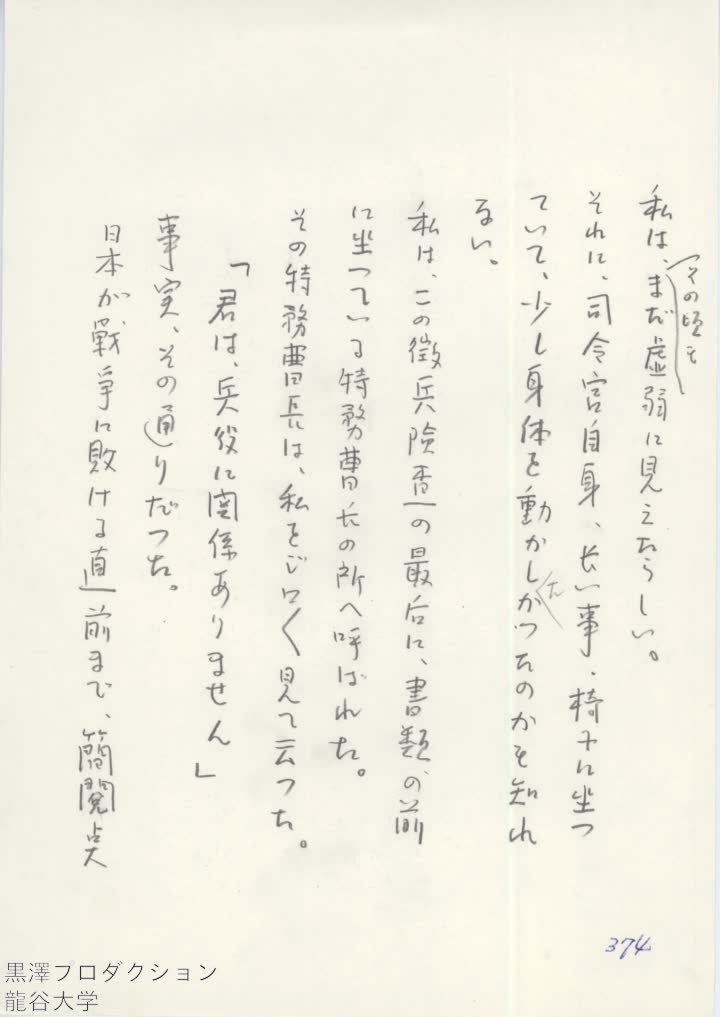 その頃も
私は、まだ虚弱に見えたらしい。
それに、司令官自身、長い事、椅子に坐つ
ていて、少し身体を動かしたかつたのかも知れ
ない。
私は、この徴兵検査の最后に、書類の前
に坐つている特務曹長の所へ呼ばれた。
その特務曹長は、私をジロ〱見て云つた。
「君は、兵役に関係ありません」
事実、その通りだつた。
日本が戦争に敗ける直前まで、簡閲点
374
黒澤プロダクション
龍谷大学